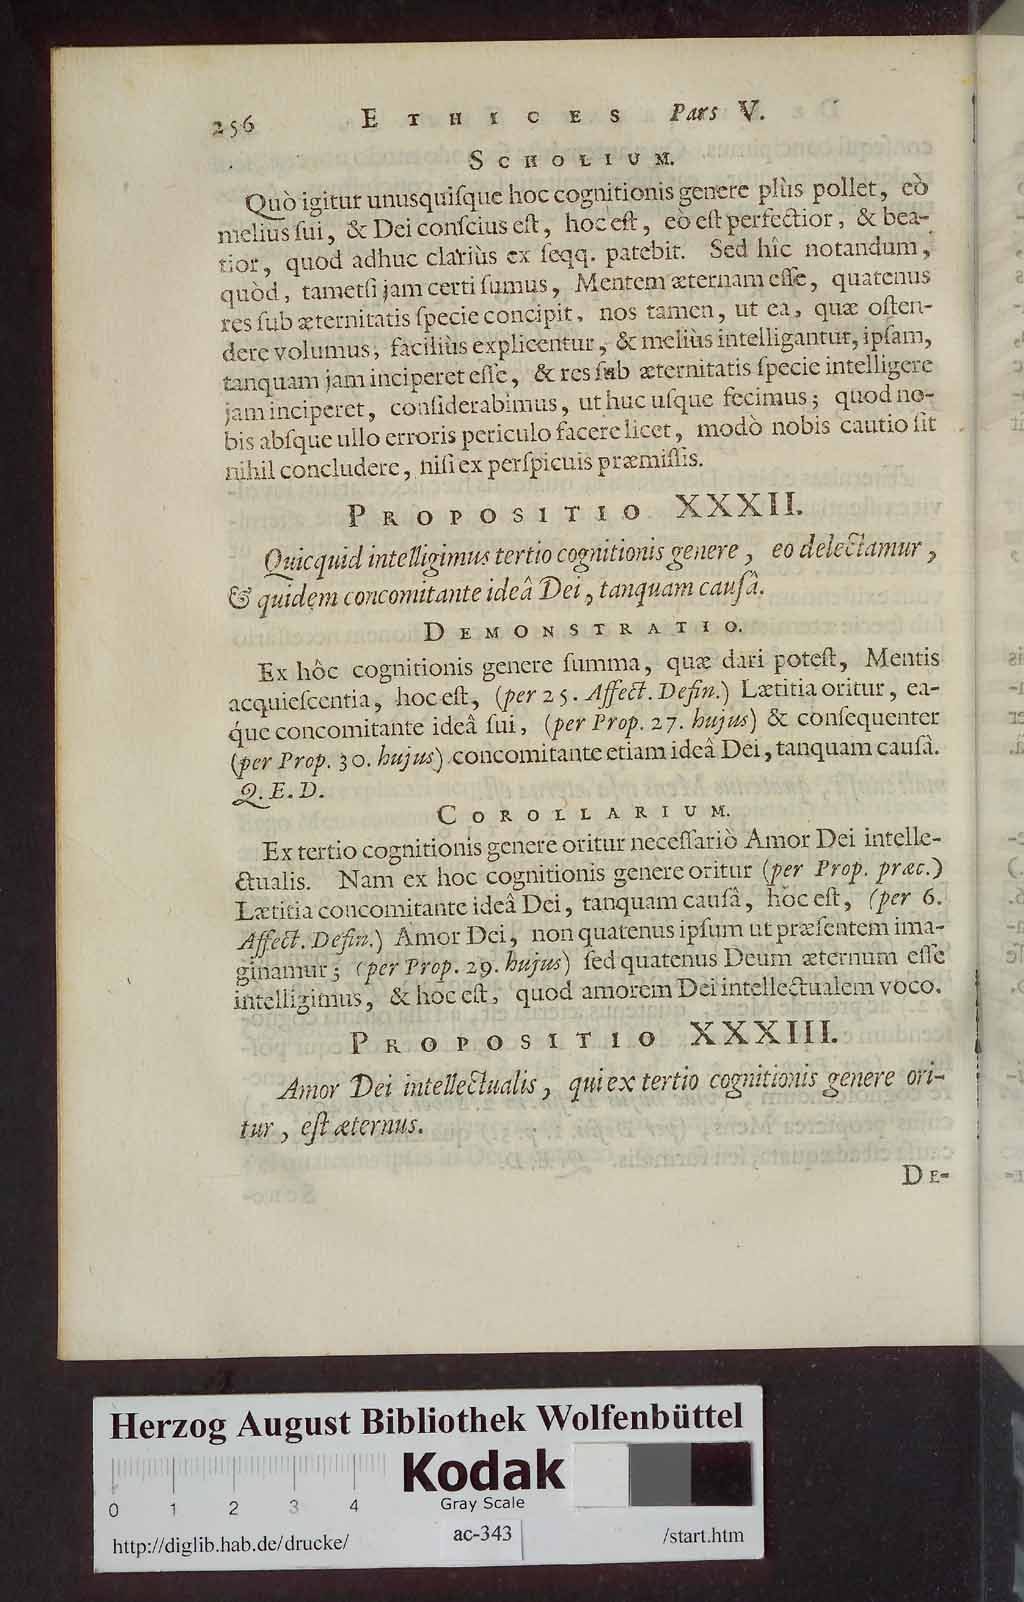 256 ETHICES Pars V.
SCHOLIUM.
Quò igitur unusquiſque hoc cognitionis genere plùs pollet, eò
melius ſui, & Dei conſcius eſt, hoc eſt, eò eſt perfectior, & bea-
tior, quod adhuc clariùs ex ſeqq. patebit. Sed hîc notandum,
quòd, tametſi jam certi ſumus, Mentem æternam eſſe, quatenus
res ſub æternitatis ſpecie concipit, nos tamen, ut ea, quæ oſten-
dere volumus, faciliùs explicentur, & meliùs intelligantur, ipſam,
tanquam jam inciperet eſſe, & res ſub æternitatis ſpecie intelligere
jam inciperet, conſiderabimus, ut huc uſque fecimus; quod no-
bis abſque ullo erroris periculo facere licet, modò nobis cautio ſit
nihil concludere, niſi ex perſpicuis præmiſſis.
PROPOSITIO XXXII.
Quicquid intelligimus tertio cognitionis genere, eo delectamur,
& quidem concomitante ideâ Dei, tanquam cauſâ.
DEMONSTRATIO.
Ex hôc cognitionis genere ſumma, quæ dari poteſt, Mentis
acquieſcentia, hoc eſt, (per 25. Affect. Defin.) Lætitia oritur, ea-
q́ue concomitante ideâ ſui, (per Prop. 27. hujus) & conſequenter
(per Prop. 30. hujus) concomitante etiam ideâ Dei, tanquam cauſâ.
Q. E. D.
COROLLARIUM.
Ex tertio cognitionis genere oritur neceſſariò Amor Dei intelle-
ctualis. Nam ex hoc cognitionis genere oritur (per Prop. præc.)
Lætitia concomitante ideâ Dei, tanquam cauſâ, hoc eſt, (per 6.
Affect. Defin.) Amor Dei, non quatenus ipſum ut præſentem ima-
ginamur; (per Prop. 29. hujus) ſed quatenus Deum æternum eſſe
intelligimus, & hoc eſt, quod amorem Dei intellectualem voco.
PROPOSITIO XXXIII.
Amor Dei intellectualis, qui ex tertio cognitionis genere ori-
tur, eſt æternus.
DE-
Herzog August Bibliothek Wolfenbüttel
Kodak
Gray Scale
0 1 2 3 4
http://diglib.hab.de/drucke/ ac-343 /start.htm